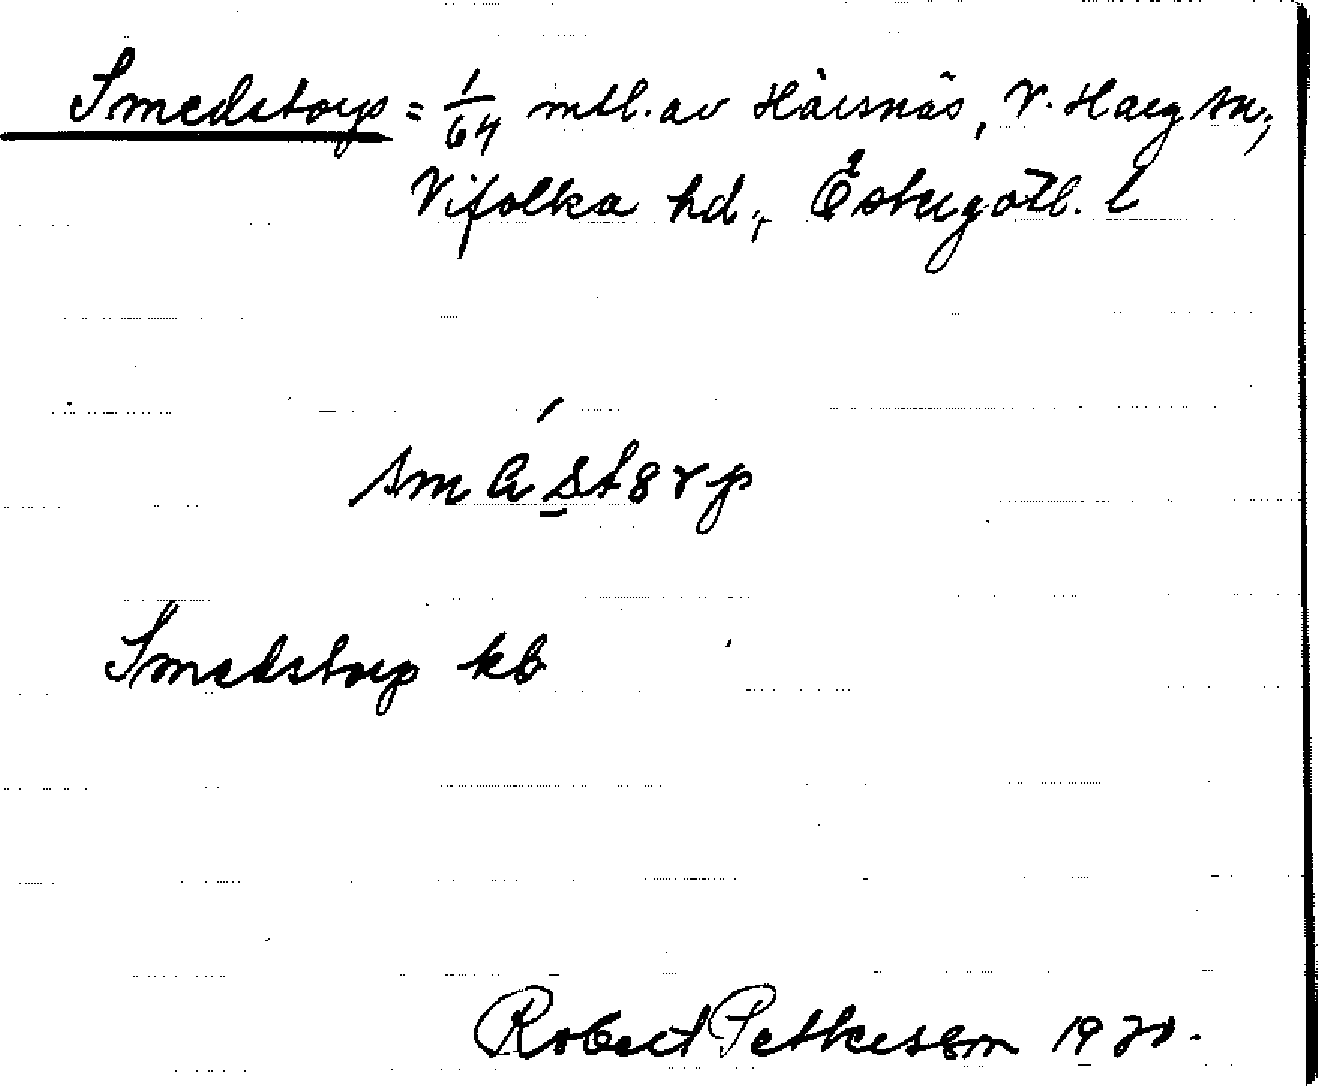 Smedstorp = 1/64 mtl. av Hårsnäs, V. Harg sn;
Vifolka hd., Östergötl. l
smǻstȣrp
Smedstorp kb
Robert Pettersson 1920.